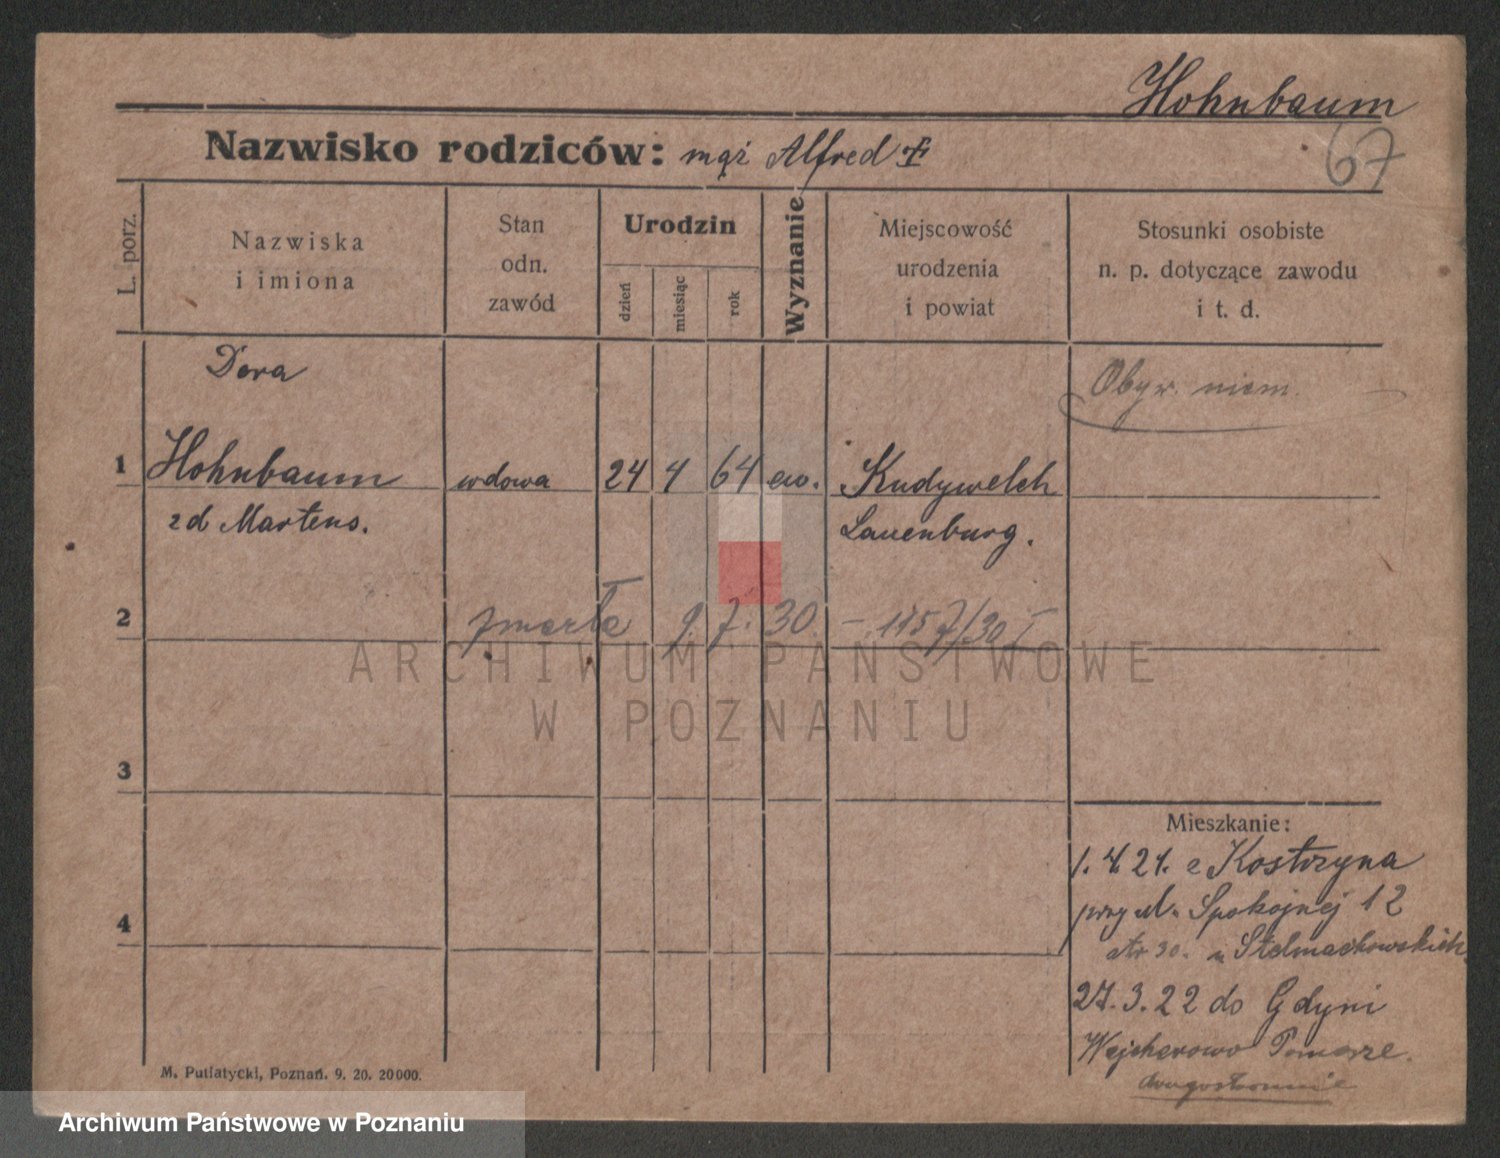 Hohnbaum
67
Nazwisko rodziców: mąż Alfred
L. porz.
Nazwiska
i imiona
Stan
odn.
zawód
Urodzin
dzień
miesiąc
rok
Wyznanie
Miejscowość
urodzenia
i powiat
Stosunki osobiste
n. p. dotyczące zawodu
i t. d.
Dora
Obyw. niem.
1 Hohnbaum wdowa 24 4 64 ew. Kudywelch
zd Martens. Lauenburg.
2 zmarła 9. 7. 30. – 1157/30 I
ARCHIWUM PAŃSTWOWE
W POZNANIU
3
Mieszkanie:
1. 4. 21. z Kostrzyna
przy ul. Spokojnej 12
4
30. u Stelmachowskich
27. 3. 22 do Gdyni
Wejcherowo Pomorze.
drugostronnie
M. Putiatycki, Poznań. 9. 20. 20000.
Archiwum Państwowe w Poznaniu